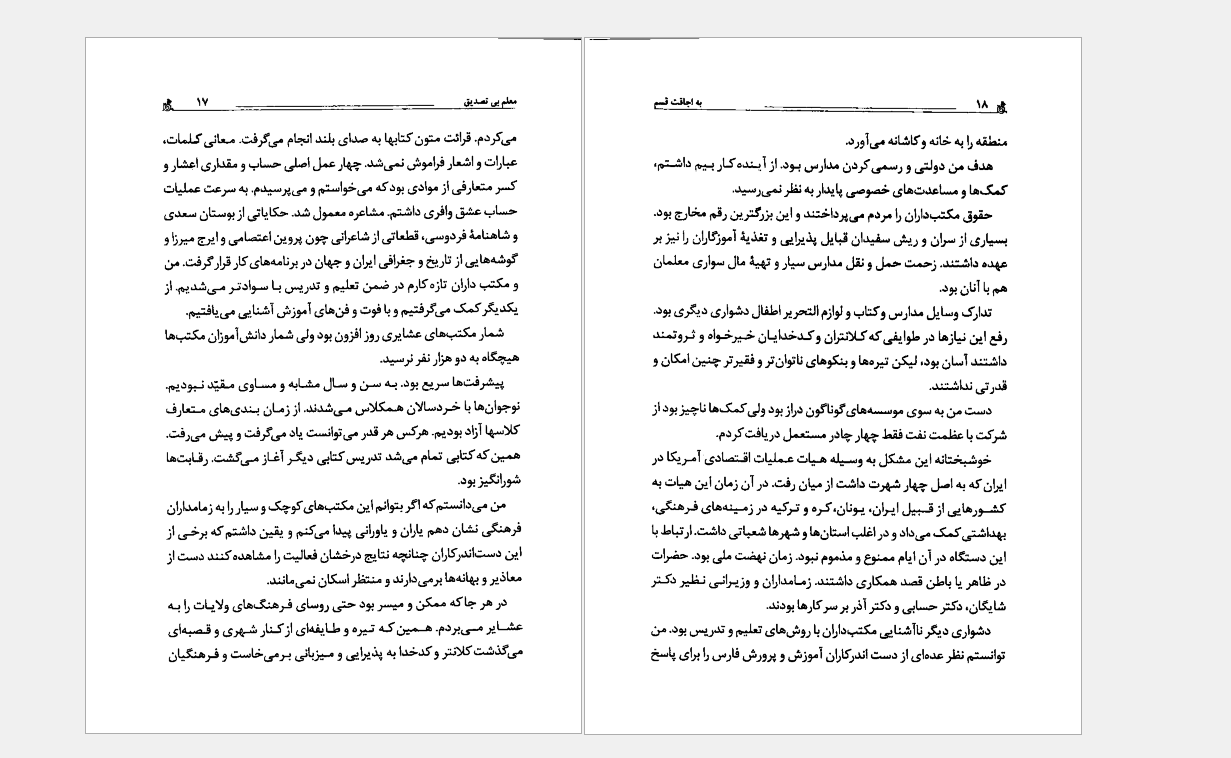 معلم بی تصدیق ۱۷
می‌کردم. قرائت متون کتابها به صدای بلند انجام می‌گرفت. معانی کلمات،
عبارات و اشعار فراموش نمی‌شد. چهار عمل اصلی حساب و مقداری اعشار و
کسر متعارفی از موادی بود که می‌خواستم و می‌پرسیدم. به سرعت عملیات
حساب عشق وافری داشتم. مشاعره معمول شد. حکایاتی از بوستان سعدی
و شاهنامهٔ فردوسی، قطعاتی از شاعرانی چون پروین اعتصامی و ایرج میرزا و
گوشه‌هایی از تاریخ و جغرافی ایران و جهان در برنامه‌های کار قرار گرفت. من
و مکتب داران تازه کارم در ضمن تعلیم و تدریس با سوادتر می‌شدیم. از
یکدیگر کمک می‌گرفتیم و با فوت و فن‌های آموزش آشنایی می‌یافتیم.
شمار مکتب‌های عشایری روز افزون بود ولی شمار دانش‌آموزان مکتب‌ها
هیچگاه به دو هزار نفر نرسید.
پیشرفت‌ها سریع بود. به سن و سال مشابه و مساوی مقیّد نبودیم.
نوجوان‌ها با خردسالان همکلاس می‌شدند. از زمان بندی‌های متعارف
کلاسها آزاد بودیم. هرکس هر قدر می‌توانست یاد می‌گرفت و پیش می‌رفت.
همین که کتابی تمام می‌شد تدریس کتابی دیگر آغاز می‌گشت. رقابت‌ها
شورانگیز بود.
من می‌دانستم که اگر بتوانم این مکتب‌های کوچک و سیار را به زمامداران
فرهنگی نشان دهم یاران و یاورانی پیدا می‌کنم و یقین داشتم که برخی از
این دست‌اندرکاران چنانچه نتایج درخشان فعالیت را مشاهده کنند دست از
معاذیر و بهانه‌ها برمی‌دارند و منتظر اسکان نمی‌مانند.
در هر جا که ممکن و میسر بود حتی روسای فرهنگ‌های ولایات را به
عشایر می‌بردم. همین که تیره و طایفه‌ای از کنار شهری و قصبه‌ای
می‌گذشت کلانتر و کدخدا به پذیرایی و میزبانی برمی‌خاست و فرهنگیان
۱۸ به اجاقت قسم
منطقه را به خانه و کاشانه می‌آورد.
هدف من دولتی و رسمی کردن مدارس بود. از آینده کار بیم داشتم،
کمک‌ها و مساعدت‌های خصوصی پایدار به نظر نمی‌رسید.
حقوق مکتب‌داران را مردم می‌پرداختند و این بزرگترین رقم مخارج بود.
بسیاری از سران و ریش سفیدان قبایل پذیرایی و تغذیهٔ آموزگاران را نیز بر
عهده داشتند. زحمت حمل و نقل مدارس سیار و تهیهٔ مال سواری معلمان
هم با آنان بود.
تدارک وسایل مدارس و کتاب و لوازم التحریر اطفال دشواری دیگری بود.
رفع این نیازها در طوایفی که کلانتران و کدخدایان خیرخواه و ثروتمند
داشتند آسان بود، لیکن تیره‌ها و بنکوهای ناتوان‌تر و فقیرتر چنین امکان و
قدرتی نداشتند.
دست من به سوی موسسه‌های گوناگون دراز بود ولی کمک‌ها ناچیز بود از
شرکت با عظمت نفت فقط چهار چادر مستعمل دریافت کردم.
خوشبختانه این مشکل به وسیله هیات عملیات اقتصادی آمریکا در
ایران که به اصل چهار شهرت داشت از میان رفت. در آن زمان این هیات به
کشورهایی از قبیل ایران، یونان، کره و ترکیه در زمینه‌های فرهنگی،
بهداشتی کمک می‌داد و در اغلب استان‌ها و شهرها شعباتی داشت. ارتباط با
این دستگاه در آن ایام ممنوع و مذموم نبود. زمان نهضت ملی بود. حضرات
در ظاهر یا باطن قصد همکاری داشتند. زمامداران و وزیرانی نظیر دکتر
شایگان، دکتر حسابی و دکتر آذر بر سر کارها بودند.
دشواری دیگر ناآشنایی مکتب‌داران با روش‌های تعلیم و تدریس بود. من
توانستم نظر عده‌ای از دست اندرکاران آموزش و پرورش فارس را برای پاسخ